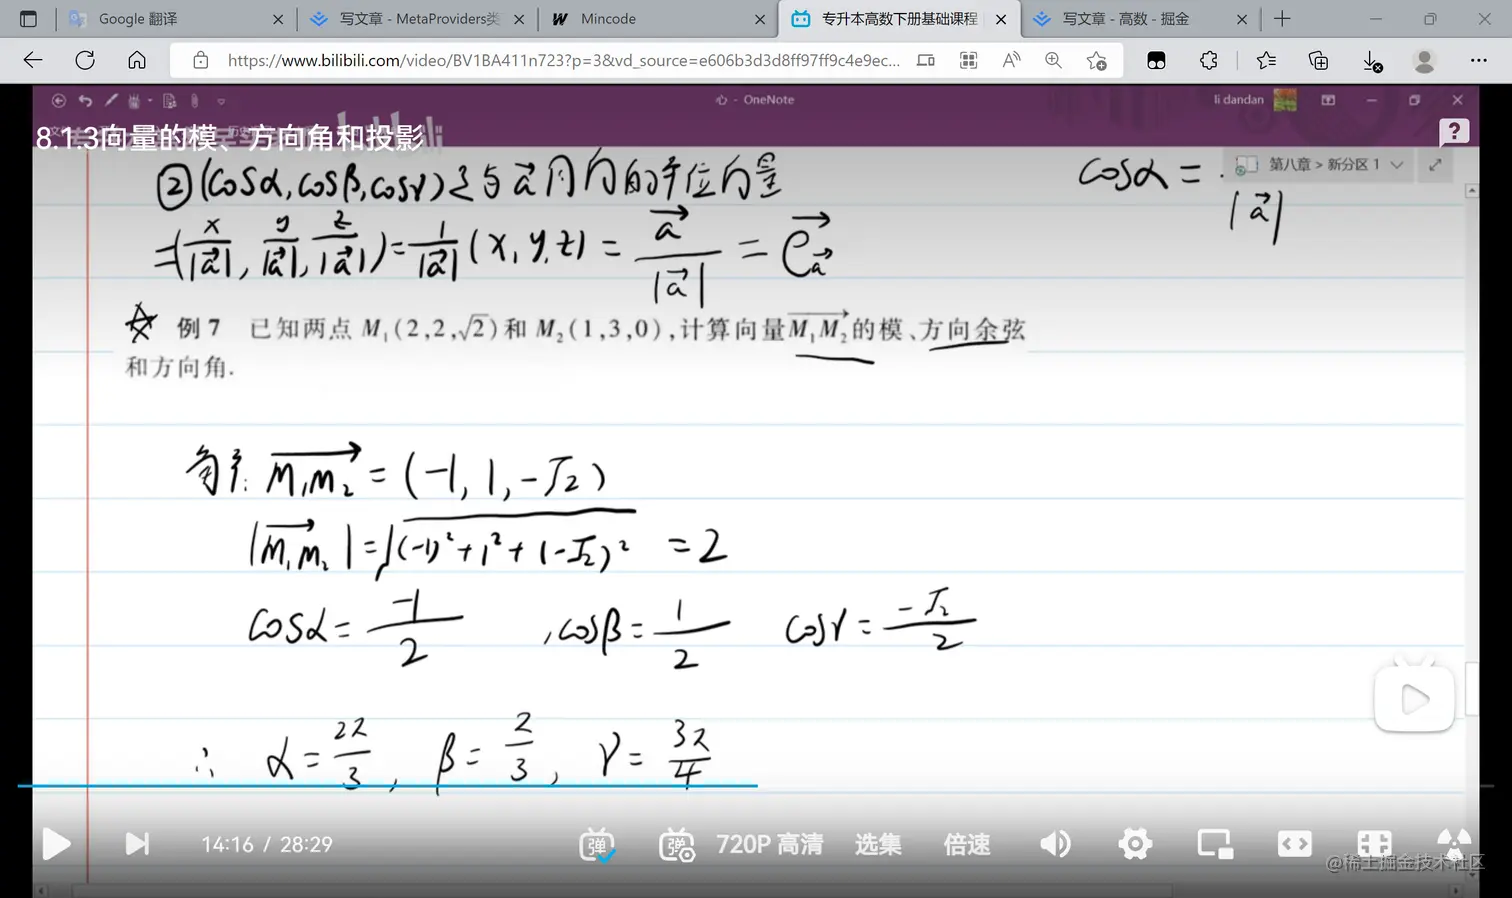 Google 翻译
写文章 - MetaProviders类
Mincode
专升本高数下册基础课程
写文章 - 高数 - 掘金
https://www.bilibili.com/video/BV1BA411n723?p=3&vd_source=e606b3d3d8ff97ff9c4e9ec...
- OneNote
li dandan
8.1.3向量的模、方向角和投影
第八章 > 新分区 1
②(cosα,cosβ,cosγ)是与a⃗同向的单位向量
cosα = · |a⃗|
=(x/|a⃗|, y/|a⃗|, z/|a⃗|)=1/|a⃗|(x,y,z) = a⃗/|a⃗| = e⃗a⃗
☆ 例 7 已知两点 M₁(2,2,√2)和 M₂(1,3,0),计算向量M₁M₂的模、方向余弦
和方向角.
解: M₁M₂ = (-1, 1, -√2)
|M₁M₂| = √(-1)²+1²+(-√2)² = 2
cosα = -1/2 , cosβ = 1/2 cosγ = -√2/2
∴ α = 2π/3 , β = π/3 , γ = 3π/4
14:16 / 28:29
弹
弹
720P 高清
选集
倍速
@稀土掘金技术社区